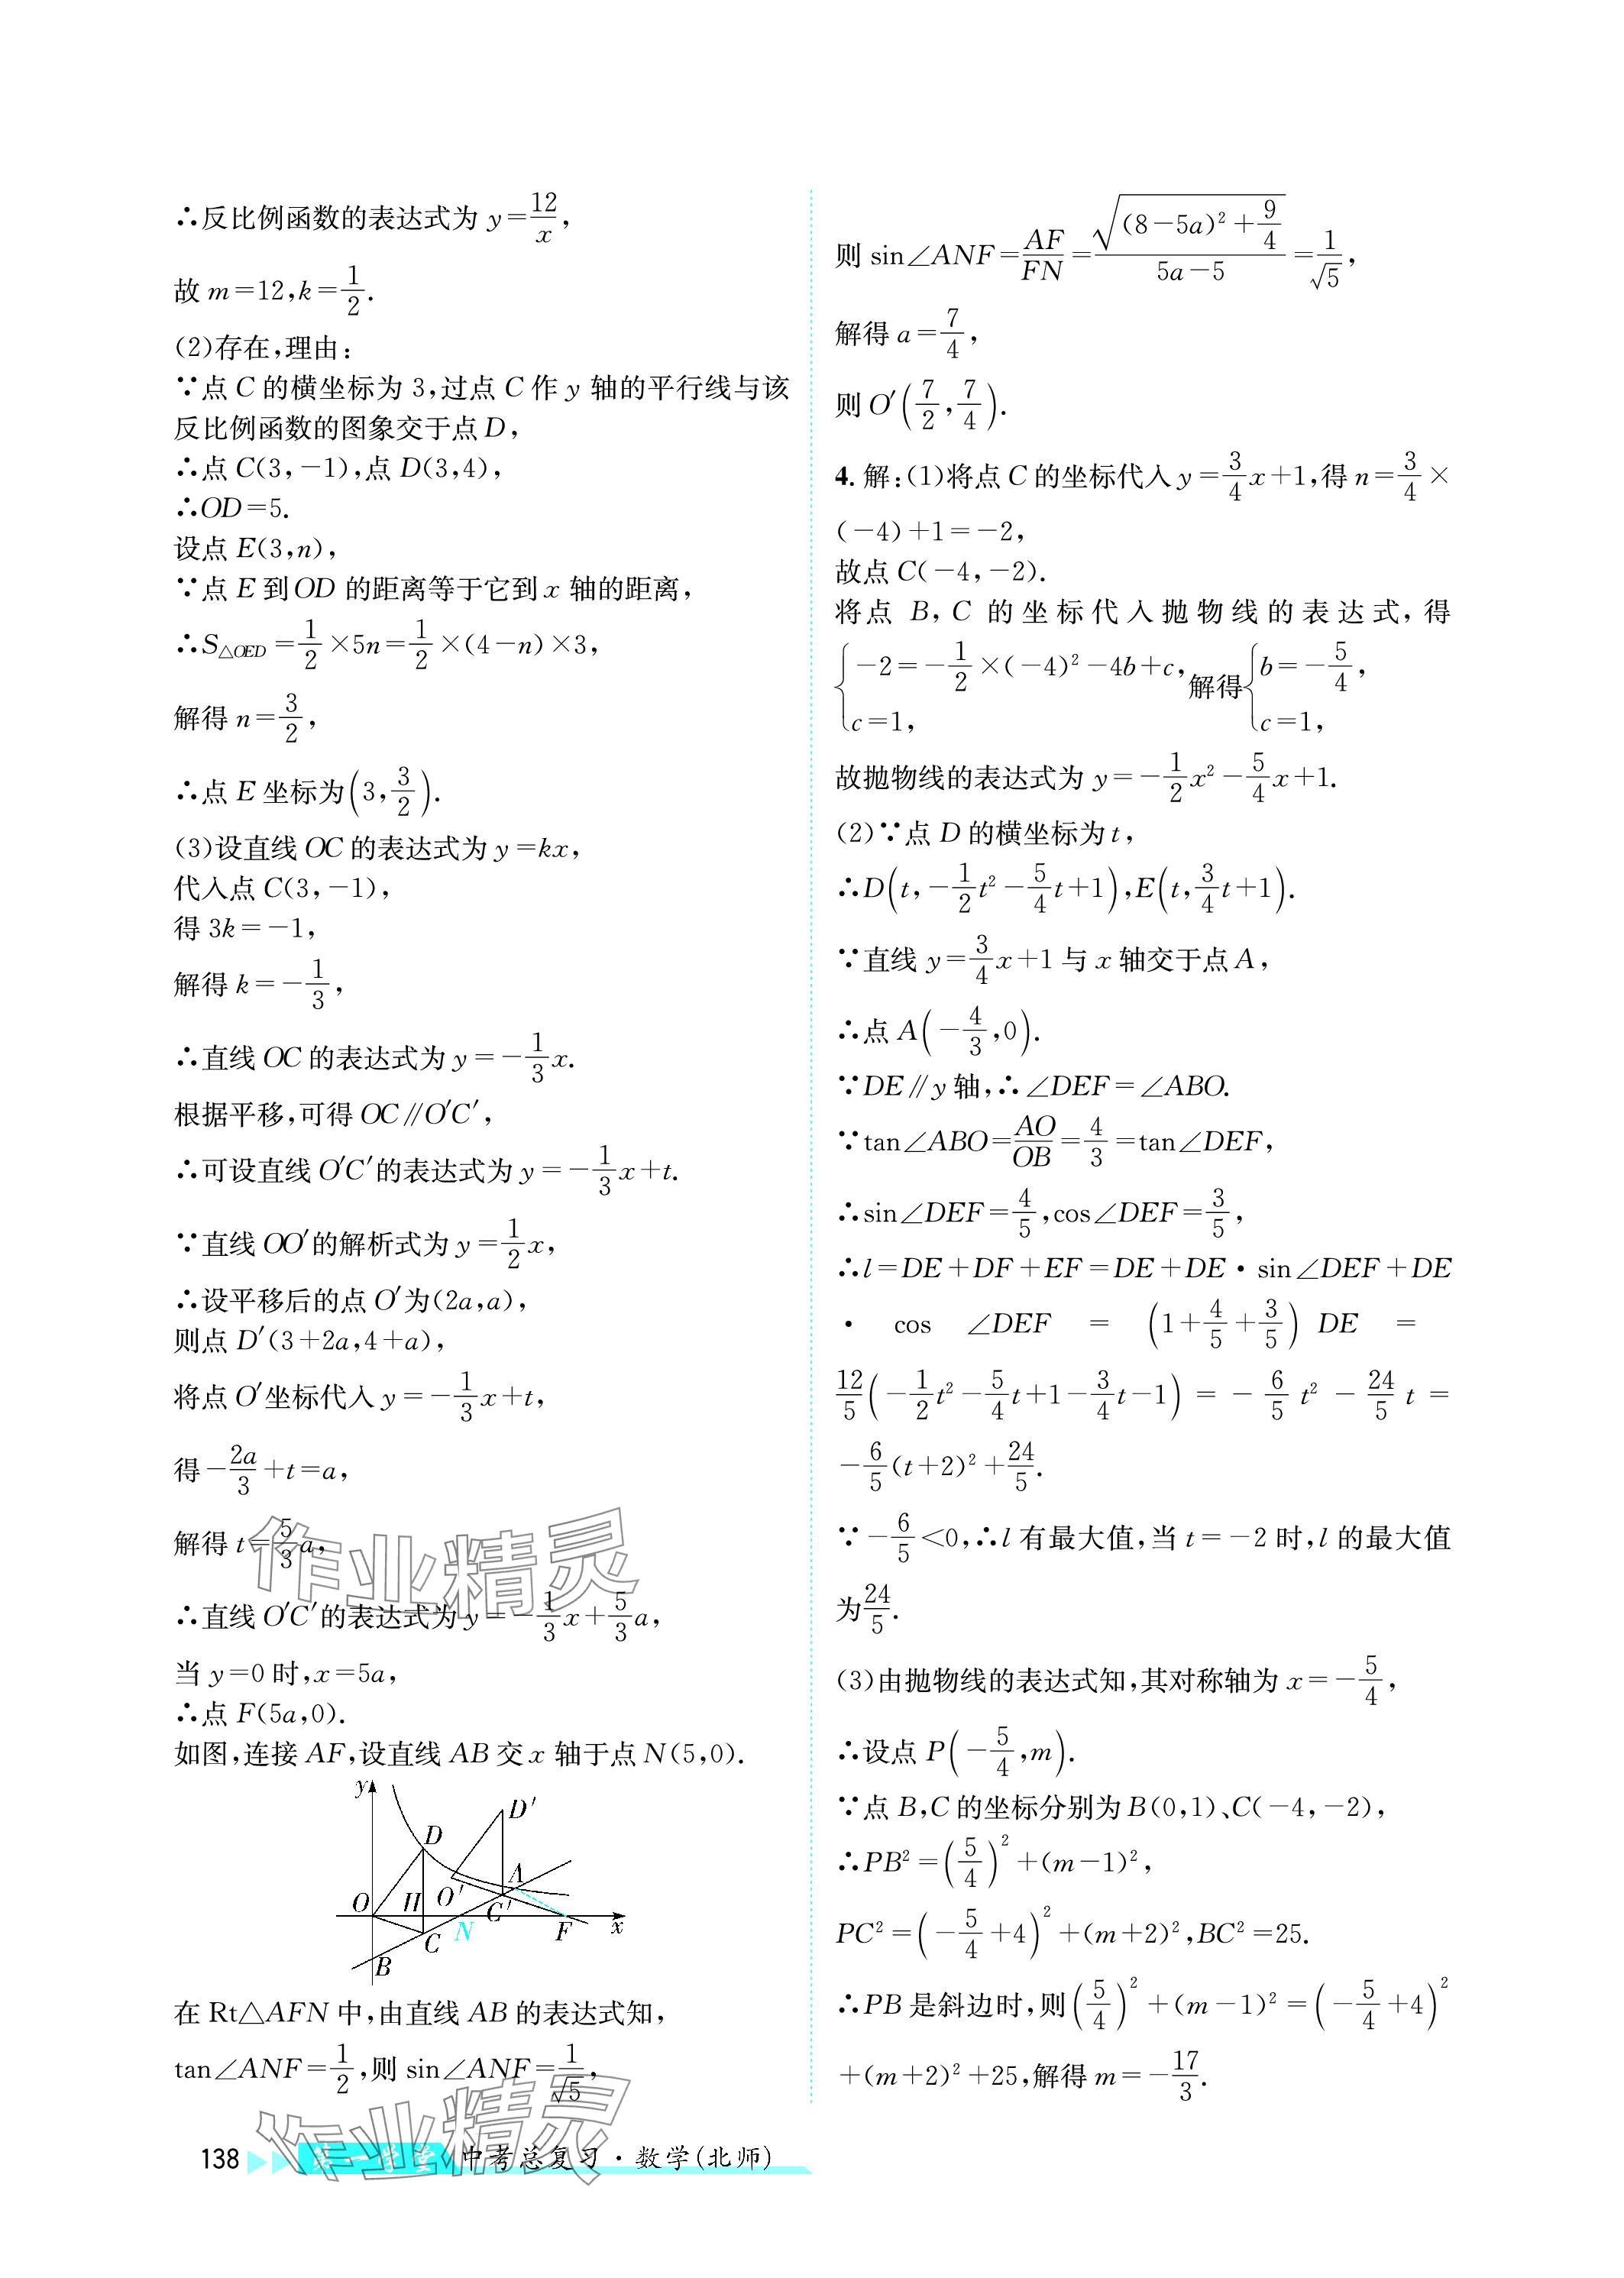 ∴反比例函数的表达式为 y=12/x,
故 m=12,k=1/2.
(2)存在,理由:
∵点 C 的横坐标为 3,过点 C 作 y 轴的平行线与该
反比例函数的图象交于点 D,
∴点 C(3,-1),点 D(3,4),
∴OD=5.
设点 E(3,n),
∵点 E 到 OD 的距离等于它到 x 轴的距离,
∴S△OED=1/2×5n=1/2×(4-n)×3,
解得 n=3/2,
∴点 E 坐标为(3,3/2).
(3)设直线 OC 的表达式为 y=kx,
代入点 C(3,-1),
得 3k=-1,
解得 k=-1/3,
∴直线 OC 的表达式为 y=-1/3x.
根据平移,可得 OC∥O′C′,
∴可设直线 O′C′的表达式为 y=-1/3x+t.
∵直线 OO′的解析式为 y=1/2x,
∴设平移后的点 O′为(2a,a),
则点 D′(3+2a,4+a),
将点 O′坐标代入 y=-1/3x+t,
得-2a/3+t=a,
解得 t=5/3a,
∴直线 O′C′的表达式为 y=-1/3x+5/3a,
当 y=0 时,x=5a,
∴点 F(5a,0).
如图,连接 AF,设直线 AB 交 x 轴于点 N(5,0).
y
D′
D
A
O
H
O′
C′
C
N
F
x
B
在 Rt△AFN 中,由直线 AB 的表达式知,
tan∠ANF=1/2,则 sin∠ANF=1/√5,
则 sin∠ANF=AF/FN=√((8-5a)²+9/4)/(5a-5)=1/√5,
解得 a=7/4,
则 O′(7/2,7/4).
4. 解:(1)将点 C 的坐标代入 y=3/4x+1,得 n=3/4×
(-4)+1=-2,
故点 C(-4,-2).
将点 B,C 的坐标代入抛物线的表达式,得
{-2=-1/2×(-4)²-4b+c, c=1, 解得{b=-5/4, c=1,
故抛物线的表达式为 y=-1/2x²-5/4x+1.
(2)∵点 D 的横坐标为 t,
∴D(t,-1/2t²-5/4t+1),E(t,3/4t+1).
∵直线 y=3/4x+1 与 x 轴交于点 A,
∴点 A(-4/3,0).
∵DE∥y 轴,∴∠DEF=∠ABO.
∵tan∠ABO=AO/OB=4/3=tan∠DEF,
∴sin∠DEF=4/5,cos∠DEF=3/5,
∴l=DE+DF+EF=DE+DE·sin∠DEF+DE
·cos∠DEF=(1+4/5+3/5)DE=
12/5(-1/2t²-5/4t+1-3/4t-1)=-6/5t²-24/5t=
-6/5(t+2)²+24/5.
∵-6/5<0,∴l 有最大值,当 t=-2 时,l 的最大值
为24/5.
(3)由抛物线的表达式知,其对称轴为 x=-5/4,
∴设点 P(-5/4,m).
∵点 B,C 的坐标分别为 B(0,1)、C(-4,-2),
∴PB²=(5/4)²+(m-1)²,
PC²=(-5/4+4)²+(m+2)²,BC²=25.
∴PB 是斜边时,则(5/4)²+(m-1)²=(-5/4+4)²
+(m+2)²+25,解得 m=-17/3.
作业精灵
作业精灵
138 第一学堂 中考总复习·数学(北师)